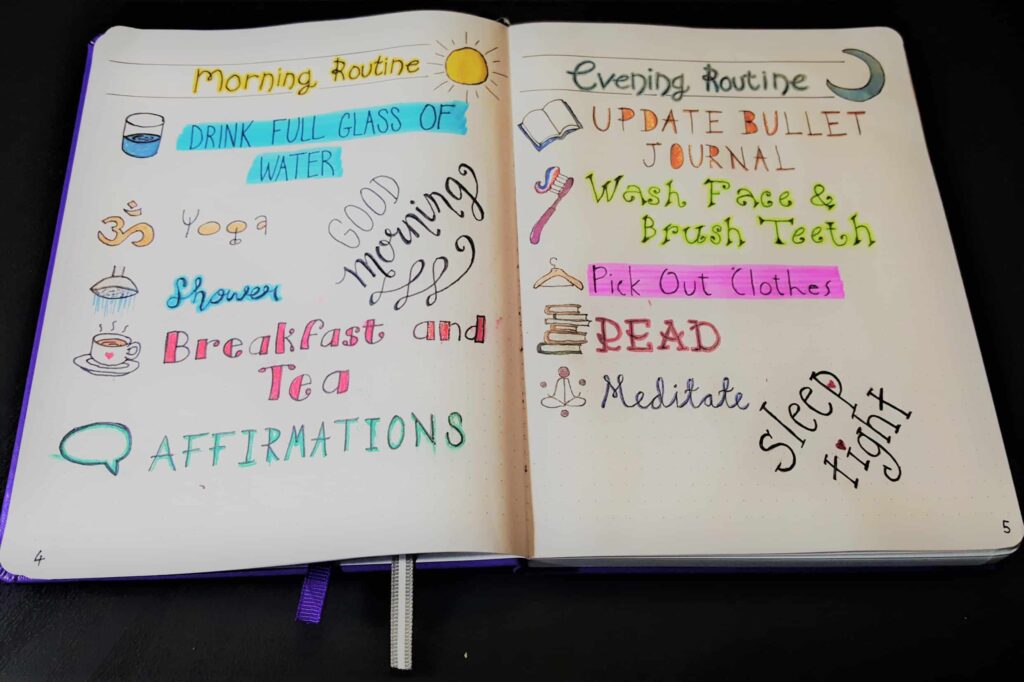 Morning Routine
DRINK FULL GLASS OF
WATER
Yoga
GOOD
Morning
Shower
Breakfast and
Tea
AFFIRMATIONS
4
Evening Routine
UPDATE BULLET
JOURNAL
Wash Face &
Brush Teeth
Pick Out Clothes
READ
Meditate
Sleep
tight
5